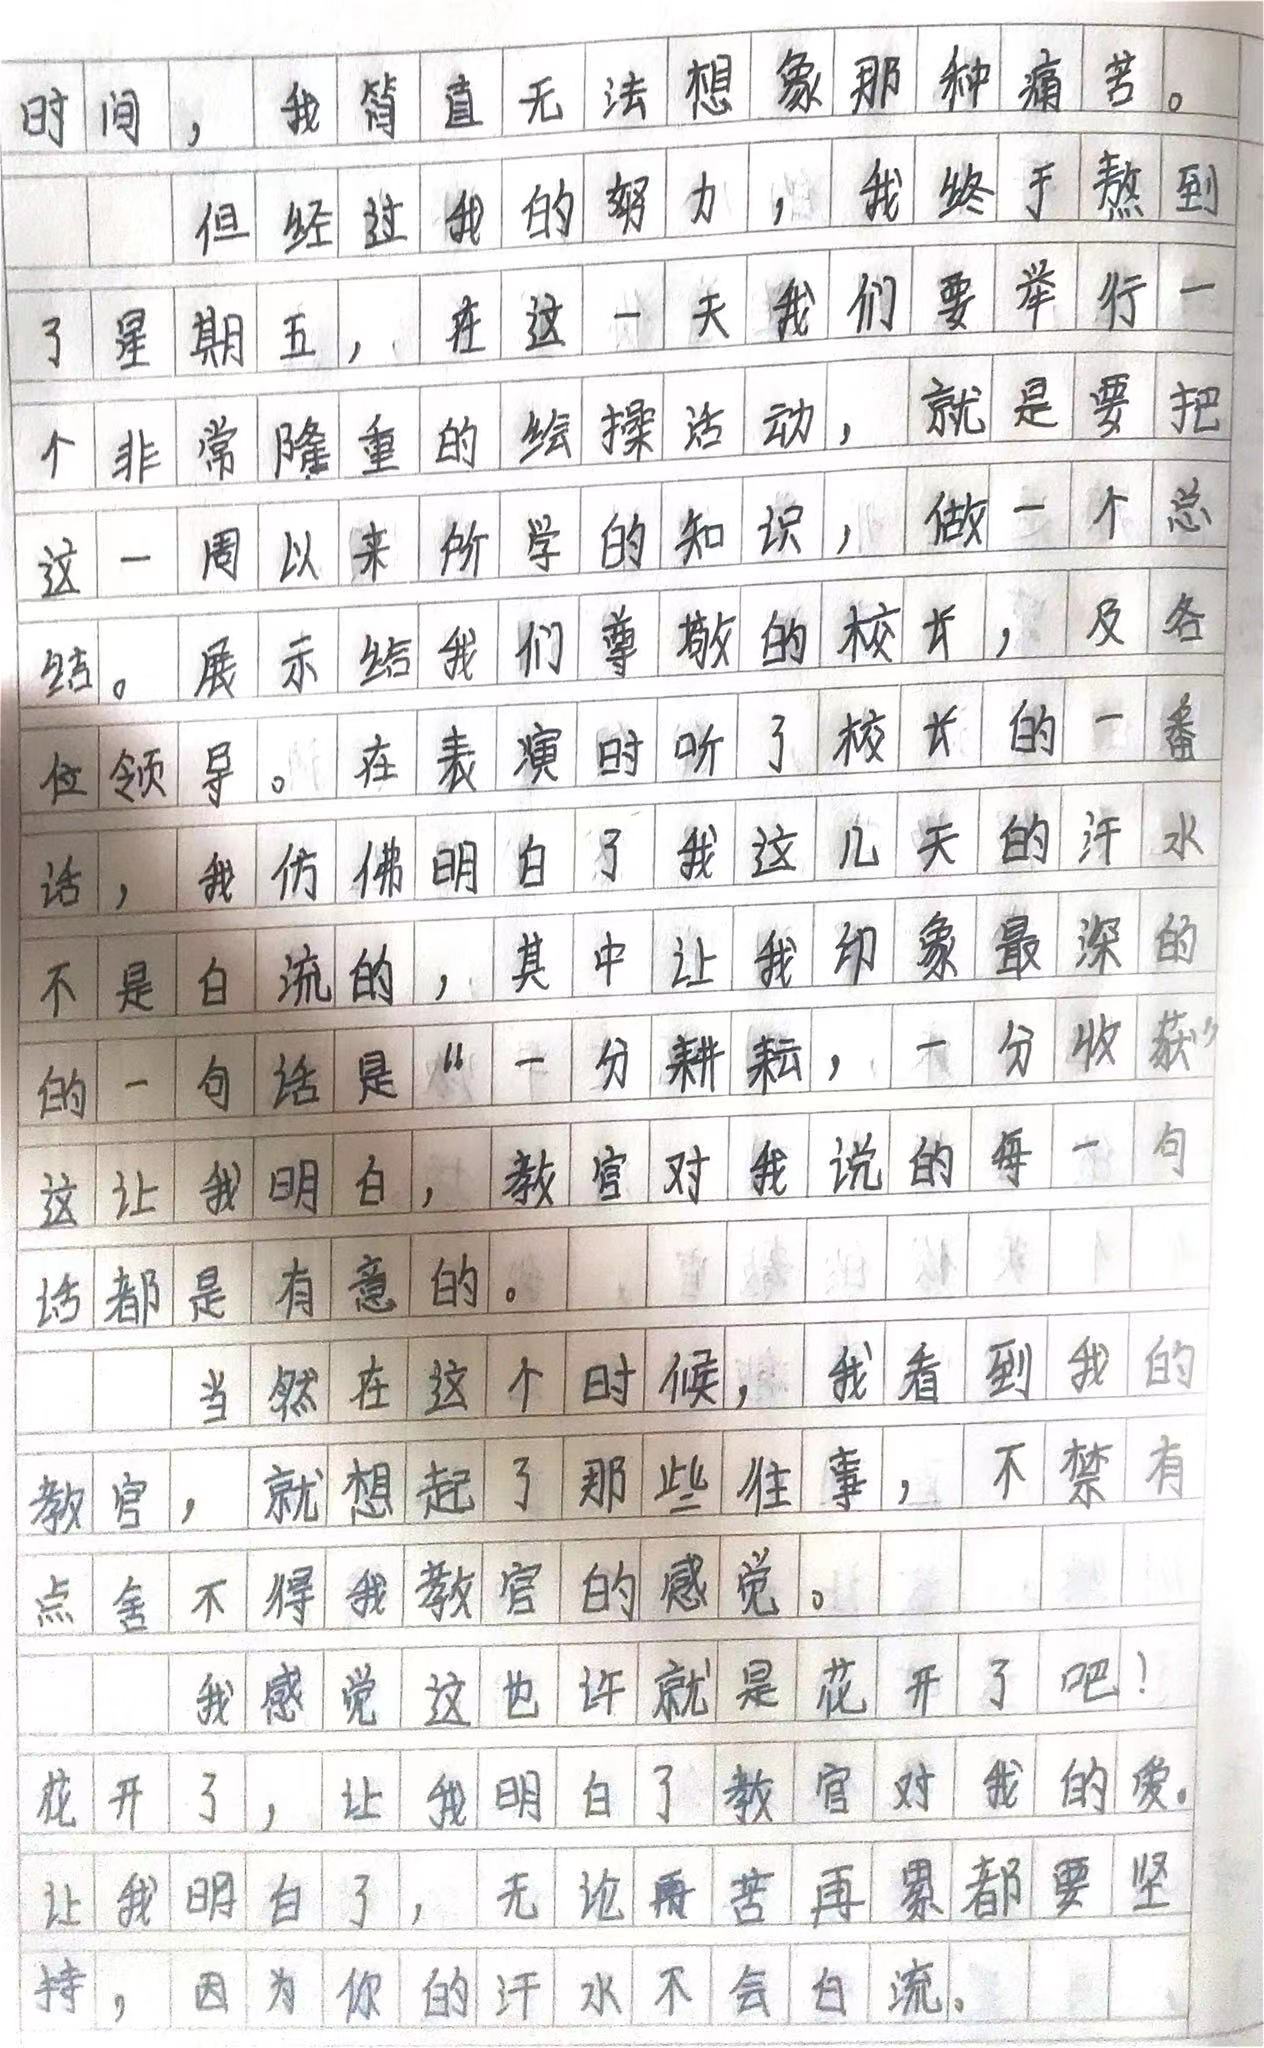 时间，我简直无法想象那种痛苦。
但经过我的努力，我终于熬到
了星期五，在这一天我们要举行一
个非常隆重的绘操活动，就是要把
这一周以来所学的知识，做一个总
结。展示给我们尊敬的校长，及各
位领导。在表演时听了校长的一番
话，我仿佛明白了我这几天的汗水
不是白流的，其中让我印象最深的
的一句话是“一分耕耘，一分收获”
这让我明白，教官对我说的每一句
话都是有意的。
当然在这个时候，我看到我的
教官，就想起了那些往事，不禁有
点舍不得我教官的感觉。
我感觉这也许就是花开了吧！
花开了，让我明白了教官对我的爱。
让我明白了，无论再苦再累都要坚
持，因为你的汗水不会白流。